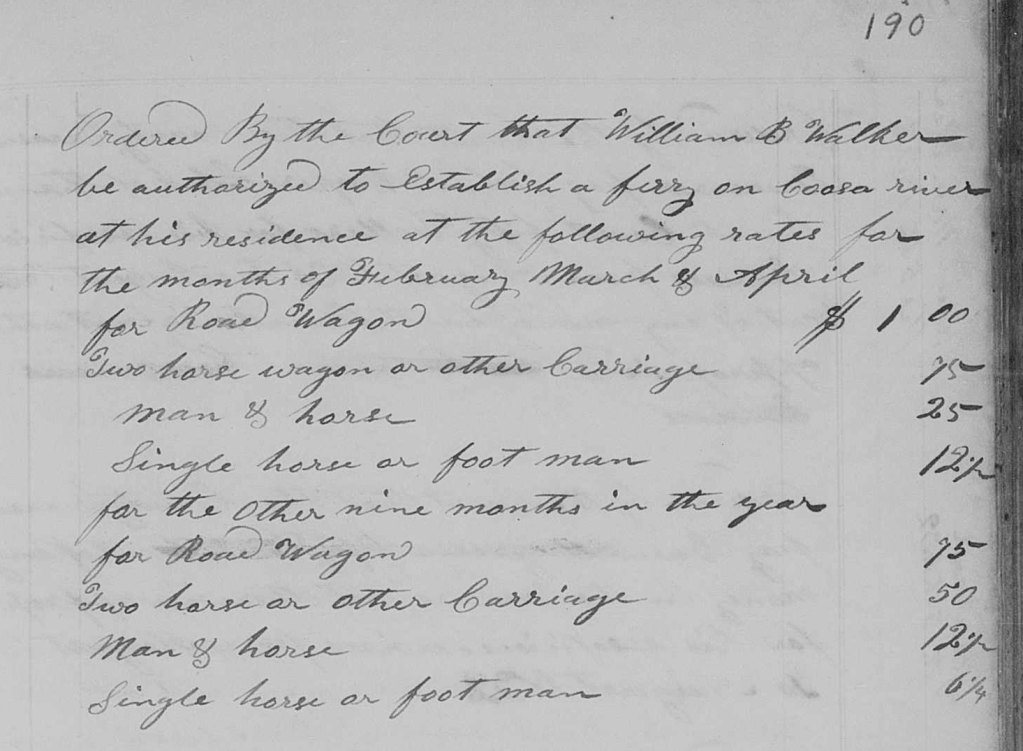 190
Ordered By the Court that William B Walker
be authorized to Establish a ferry on Coosa river
at his residence at the following rates for
the months of February March & April
for Road Wagon $ 1 00
Two horse wagon or other Carriage 75
man & horse 25
Single horse or foot man 12 1/2
for the other nine months in the year
for Road Wagon 75
Two horse or other Carriage 50
Man & horse 12 1/2
Single horse or foot man 6 1/4